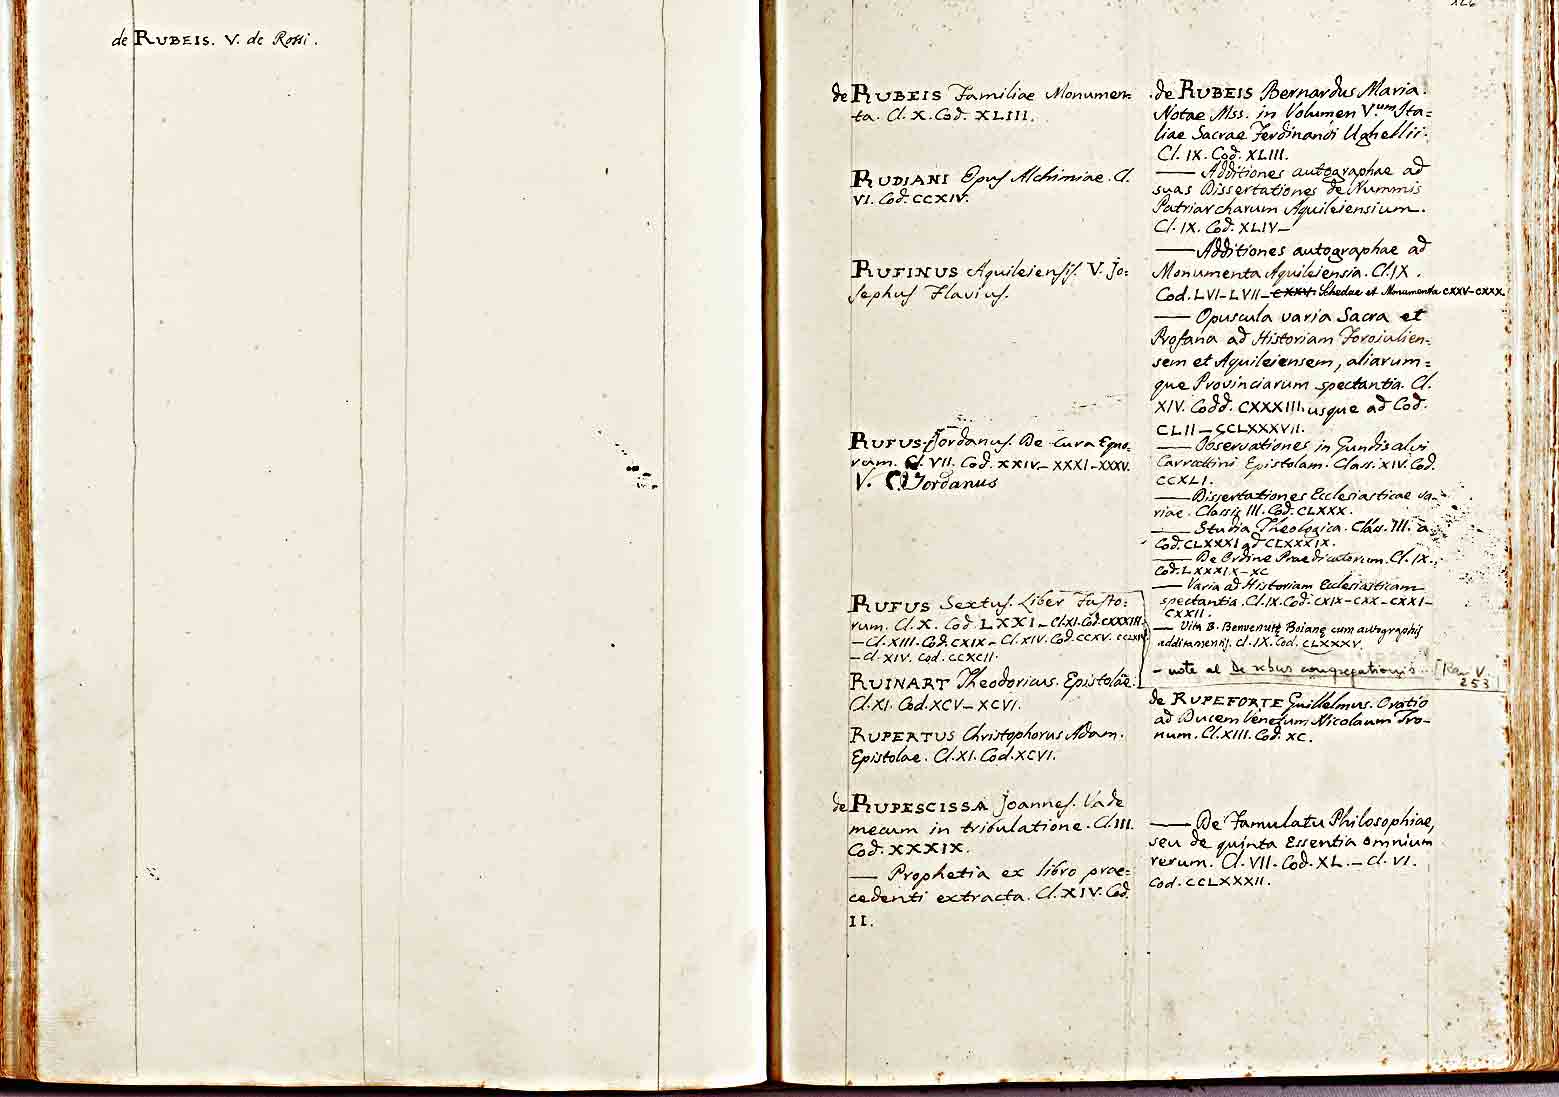 de RUBEIS. V. de Rossi.
de RUBEIS Familiae Monumen=
ta. Cl. X. Cod. XLIII.
RUDIANI Opus Alchimiae. Cl.
VI. Cod. CCXIV.
RUFINUS Aquileiensis. V. Jo=
sephus Flavius.
RUFUS Jordanus. De Cura Equo=
rum. Cl. VII. Cod. XXIV– XXXI–XXXV.
V. Jordanus
RUFUS Sextus. Liber Fasto=
rum. Cl. X. Cod. LXXI – Cl. XI. Cod. CXXXIII
– Cl. XIII. Cod. CXIX – Cl. XIV. Cod. CCXV.
– Cl. XIV. Cod. CCXCII.
RUINART Theodoricus. Epistolae.
Cl. XI. Cod. XCV – XCVI.
RUPERTUS Christophorus Adam.
Epistolae. Cl. XI. Cod. XCVI.
de RUPESCISSA Joannes. Vade
mecum in tribulatione. Cl. III.
Cod. XXXIX.
— Prophetia ex libro prae=
cedenti extracta. Cl. XIV. Cod.
II.
de RUBEIS Bernardus Maria.
Notae Mss. in Volumen V.um Ita=
liae Sacrae Ferdinandi Ughellii.
Cl. IX. Cod. XLIII.
— Additiones autographae ad
suas Dissertationes de Nummis
Patriarcharum Aquileiensium.
Cl. IX. Cod. XLIV –
— Additiones autographae ad
Monumenta Aquileiensia. Cl. IX.
Cod. LVI – LVII – CXXVI Schedae et Monumenta CXXV–CXXX
— Opuscula varia Sacra et
Profana ad Historiam Forojulien=
sem et Aquileiensem, aliarum=
que Provinciarum spectantia. Cl.
XIV. Codd. CXXXIII. usque ad Cod.
CLII – CCLXXXVII.
— Observationes in Gundisalvi
Epistolam. Class. XIV. Cod.
CCXLI.
— Dissertationes Ecclesiasticae va=
riae. Classis III. Cod. CLXXX.
— Studia Theologica. Class. III. a
Cod. CLXXXI ad CLXXXIX.
— De Ordine Praedicatorum. Cl. IX.
Cod. LXXXIX – XC
— Varia ad Historiam Ecclesiasticam
spectantia. Cl. IX. Cod. CXIX – CXX – CXXI –
CXXII.
— Vita B. Benvenutę Boianę cum autographis
additamentis. Cl. IX. Cod. CLXXXV.
– note al De rebus congregationis [V.
253
de RUPEFORTE Guillelmus. Oratio
ad Ducem Venetum Nicolaum Tro=
num. Cl. XIII. Cod. XC.
— De Famulatu Philosophiae,
seu de quinta Essentia omnium
rerum. Cl. VII. Cod. XL. – Cl. VI.
Cod. CCLXXXII.